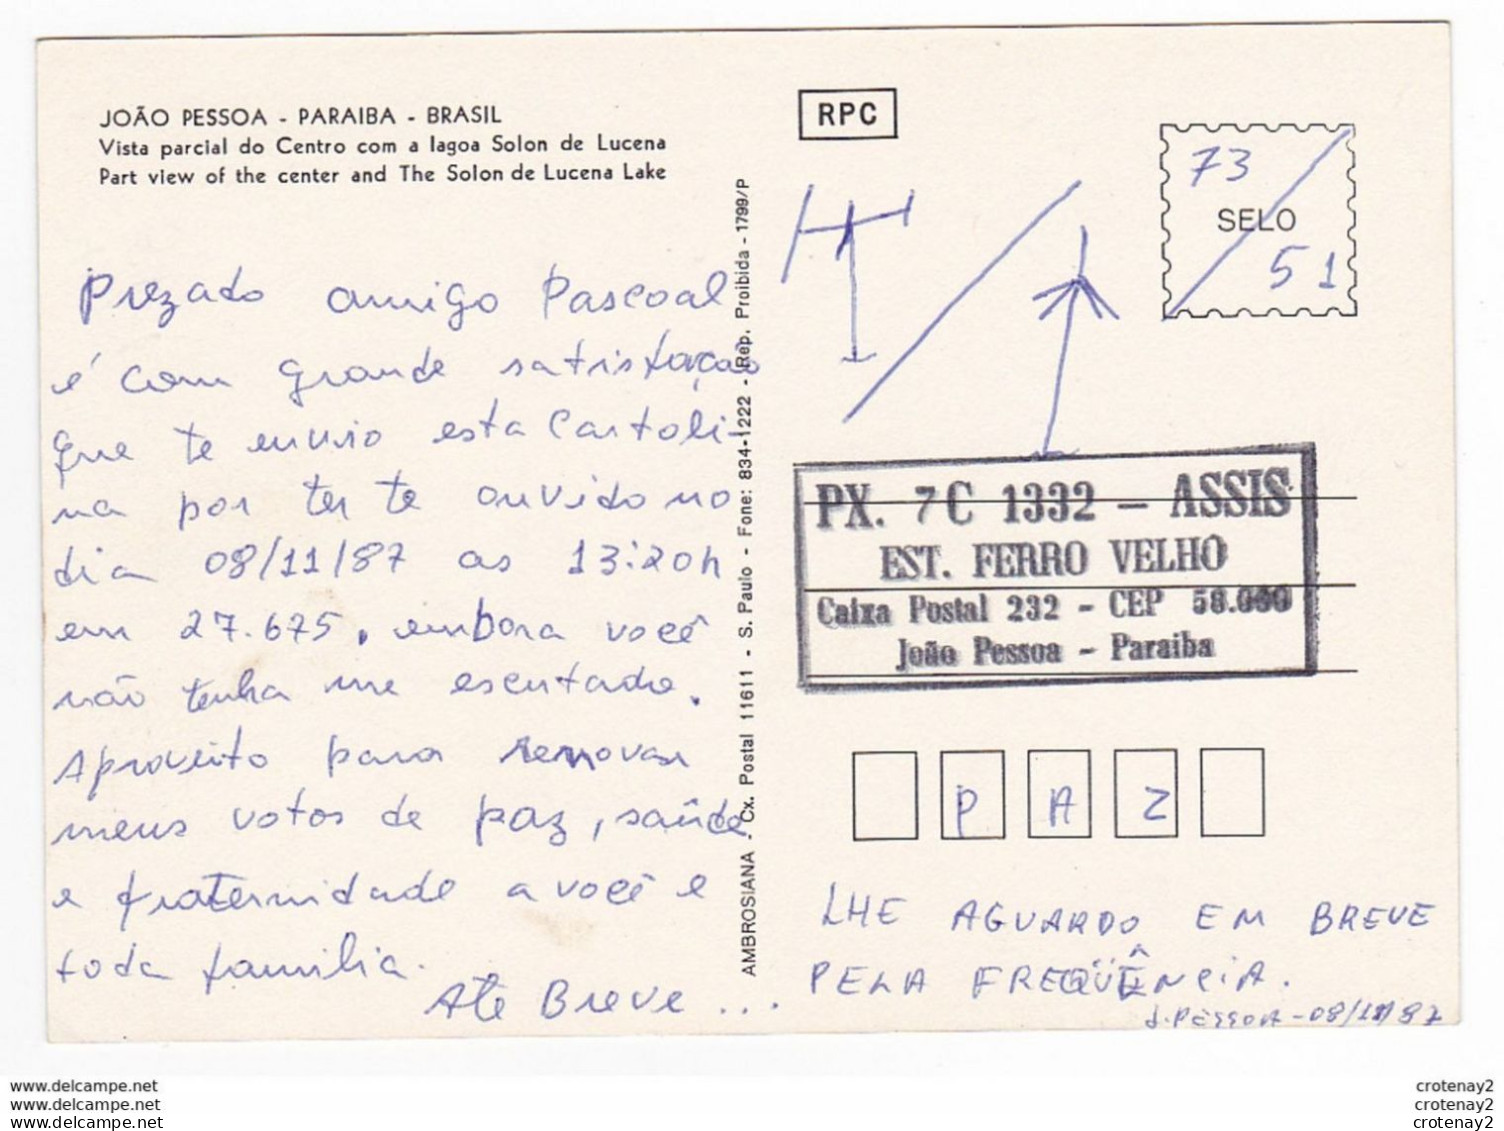 JOÃO PESSOA - PARAIBA - BRASIL
Vista parcial do Centro com a lagoa Solon de Lucena
Part view of the center and The Solon de Lucena Lake
Prezado amigo Pascoal
é com grande satisfação
que te envio esta Cartoli-
na por ter te ouvido no
dia 08/11/87 as 13:20h
em 27.675, embora você
não tenha me escutado.
Aproveito para renovar
meus votos de paz, saúde
e fraternidade a você e
toda família.
Até Breve...
AMBROSIANA - Cx. Postal 11611 - S. Paulo - Fone: 834-1222 - Rep. Proibida - 1799/P
RPC
73
SELO
51
PX. 7C 1332 - ASSIS
EST. FERRO VELHO
Caixa Postal 232 - CEP 58.000
João Pessoa - Paraiba
P A Z
LHE AGUARDO EM BREVE
PELA FREQÜÊNCIA.
J. PESSOA - 08/11/87
www.delcampe.net
www.delcampe.net
www.delcampe.net
crotenay2
crotenay2
crotenay2